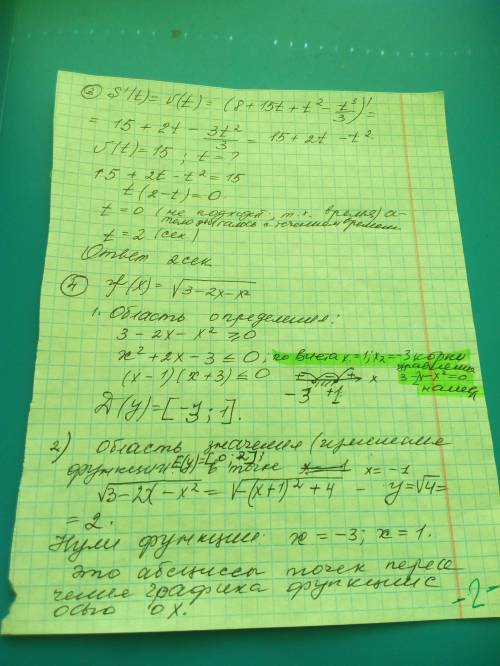 ③ S'(t) = v(t) = (8 + 15t + t² - t³/3)' =
= 15 + 2t - 3t²/3 = 15 + 2t - t².
v(t) = 15 ; t = ?
15 + 2t - t² = 15
t(2 - t) = 0
t = 0 (не подходит, т.к. время) а-
тело двигалось с течением времени.
t = 2 (сек)
Ответ 2сек
④ f(x) = √(3 - 2x - x²)
1. Область определения:
3 - 2x - x² ≥ 0
x² + 2x - 3 ≤ 0; по Виета x₁ = 1; x₂ = -3 корни
уравнения
(x - 1)(x + 3) ≤ 0 + - + x 3-2x-x²=0
-3 +1 нашел
D(y) = [-3; 1].
2) Область значения (изменение
функции E(y)=[0; 2]; в точке x = -1
√(3 - 2x - x²) = √(-(x+1)² + 4) - y = √4 =
= 2.
Нули функции: x = -3; x = 1.
Это абсциссы точек пересе
чения графика функции с
осью OX.
-2-